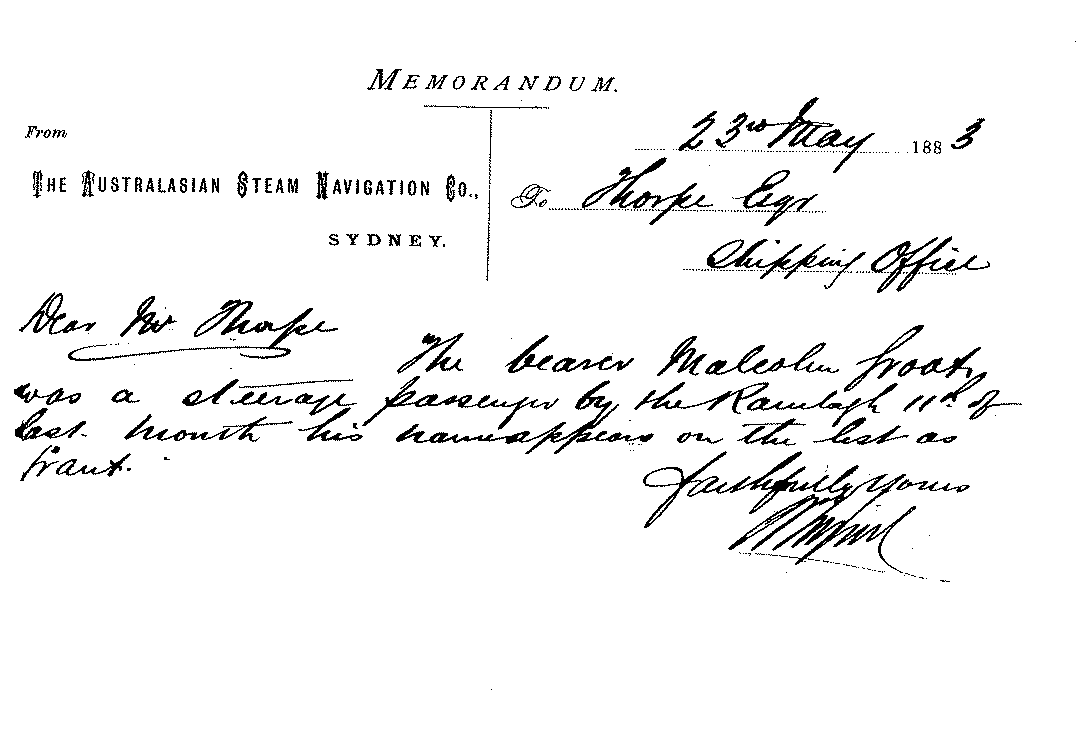 MEMORANDUM.
From
23rd May 1883
THE AUSTRALASIAN STEAM NAVIGATION CO.,
To Thorpe Esqr
SYDNEY.
Shipping Office
Dear Mr Thorpe
The bearer Malcolm Groat
was a steerage passenger by the Ranelagh 11th of
last month his name appears on the list as
Grant.
faithfully yours